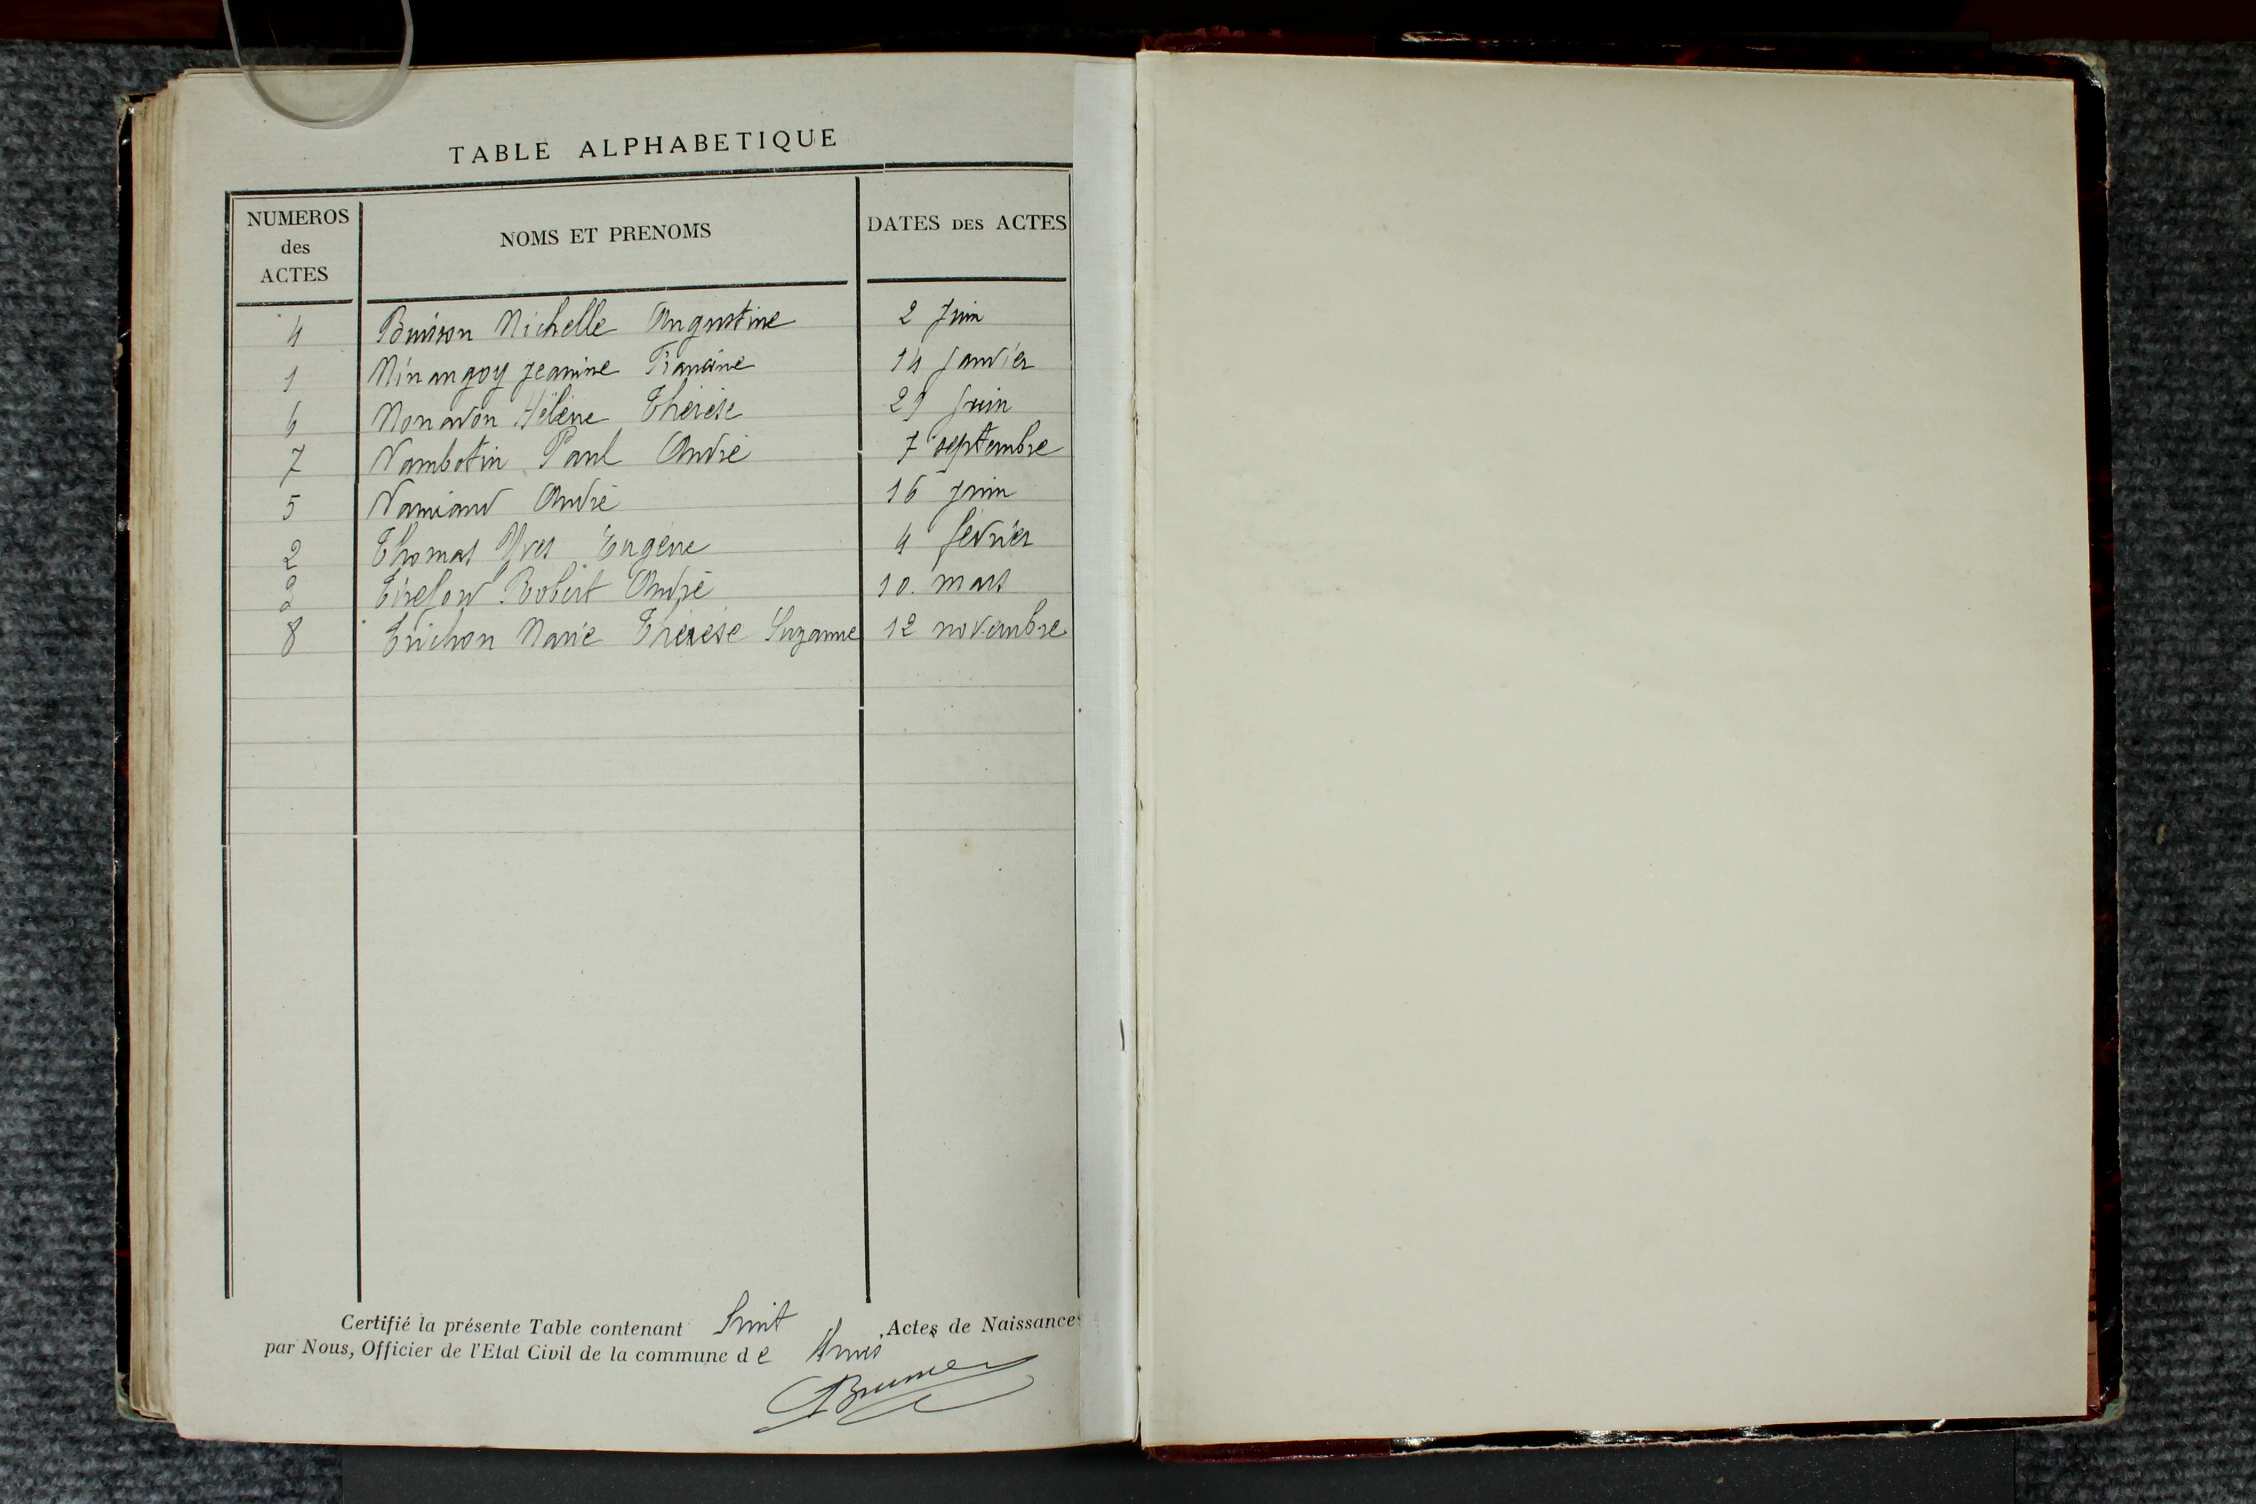 TABLE ALPHABETIQUE
NUMEROS des ACTES NOMS ET PRENOMS DATES DES ACTES
4 Buisson Michelle Augustine 2 juin
1 Minangoy Jeanine Francine 14 janvier
6 Monavon Hélène Thérèse 29 juin
7 Nambotin Paul André 7 septembre
5 Namiand André 16 juin
2 Thomas Yves Eugène 4 février
3 Tirefort Robert André 10. mars
8 Trichon Marie Thérèse Suzanne 12 novembre
Certifié la présente Table contenant huit Actes de Naissances
par Nous, Officier de l'Etat Civil de la commune de